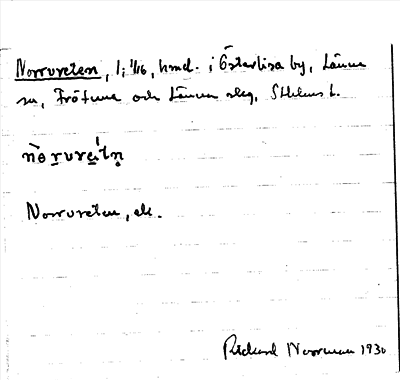 Norrvreten, 1; 1/16, hmd. i Österlisa by, Länna
sn, Frötuna och Länna skg, Sthlms l.
nòrvrei̯tn̥
Norrvreten, ek.
Rickard Norrman 1930